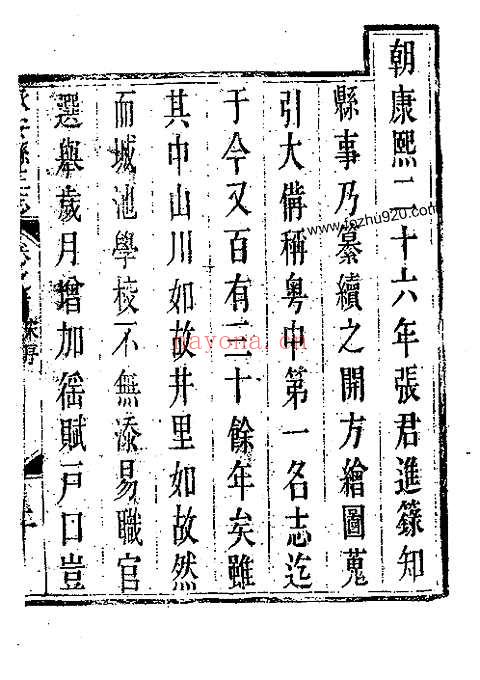 朝康熙二十六年張君進籙知
縣事乃纂續之開方繪圖蒐
引大備稱粵中第一名志迄
于今又百有三十餘年矣雖
其中山川如故井里如故然
而城池學校不無添易職官
選舉歲月增加徭賦戶口豈
www.fozhu920.com
nayona.cn